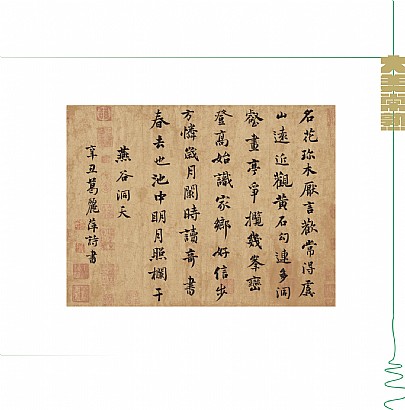 大美常熟
名花珍木厭言歡常得虞
山遠近觀黄石勾連多洞
壑畫亭爭攬幾峯巒
登高始識家鄉好信步
方憐歲月闌時讀奇書
春去也池中明月照欄干
燕谷洞天
辛丑葛麗萍詩書